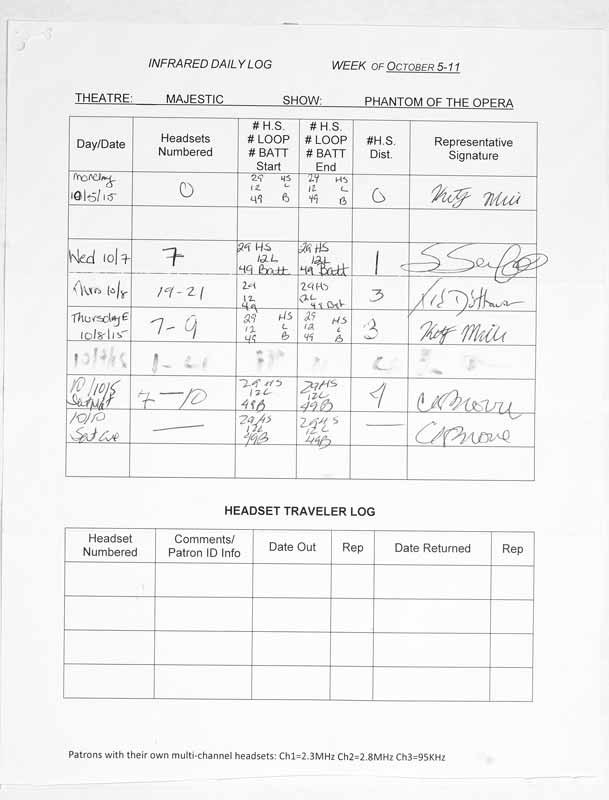 INFRARED DAILY LOG WEEK OF OCTOBER 5-11
THEATRE: MAJESTIC SHOW: PHANTOM OF THE OPERA
Day/Date
Headsets
Numbered
# H.S.
# LOOP
# BATT
Start
# H.S.
# LOOP
# BATT
End
#H.S.
Dist.
Representative
Signature
Monday
10/5/15
0
29 HS
12 L
49 B
29 HS
12 L
49 B
0
Wed 10/7
7
29 HS
12 L
49 Batt
29 HS
12 L
49 Batt
1
Thurs 10/8
19-21
29
12
49
29 HS
12L
3
Thursday E
10/8/15
7-9
29 HS
12 L
49 B
29 HS
12 L
49 B
3
7-10
29 HS
12L
49B
29HS
12L
49B
4
10/10
Sat Eve
—
29 HS
12L
49B
29HS
12 L
49B
—
HEADSET TRAVELER LOG
Headset
Numbered
Comments/
Patron ID Info
Date Out
Rep
Date Returned
Rep
Patrons with their own multi-channel headsets: Ch1=2.3MHz Ch2=2.8MHz Ch3=95KHz